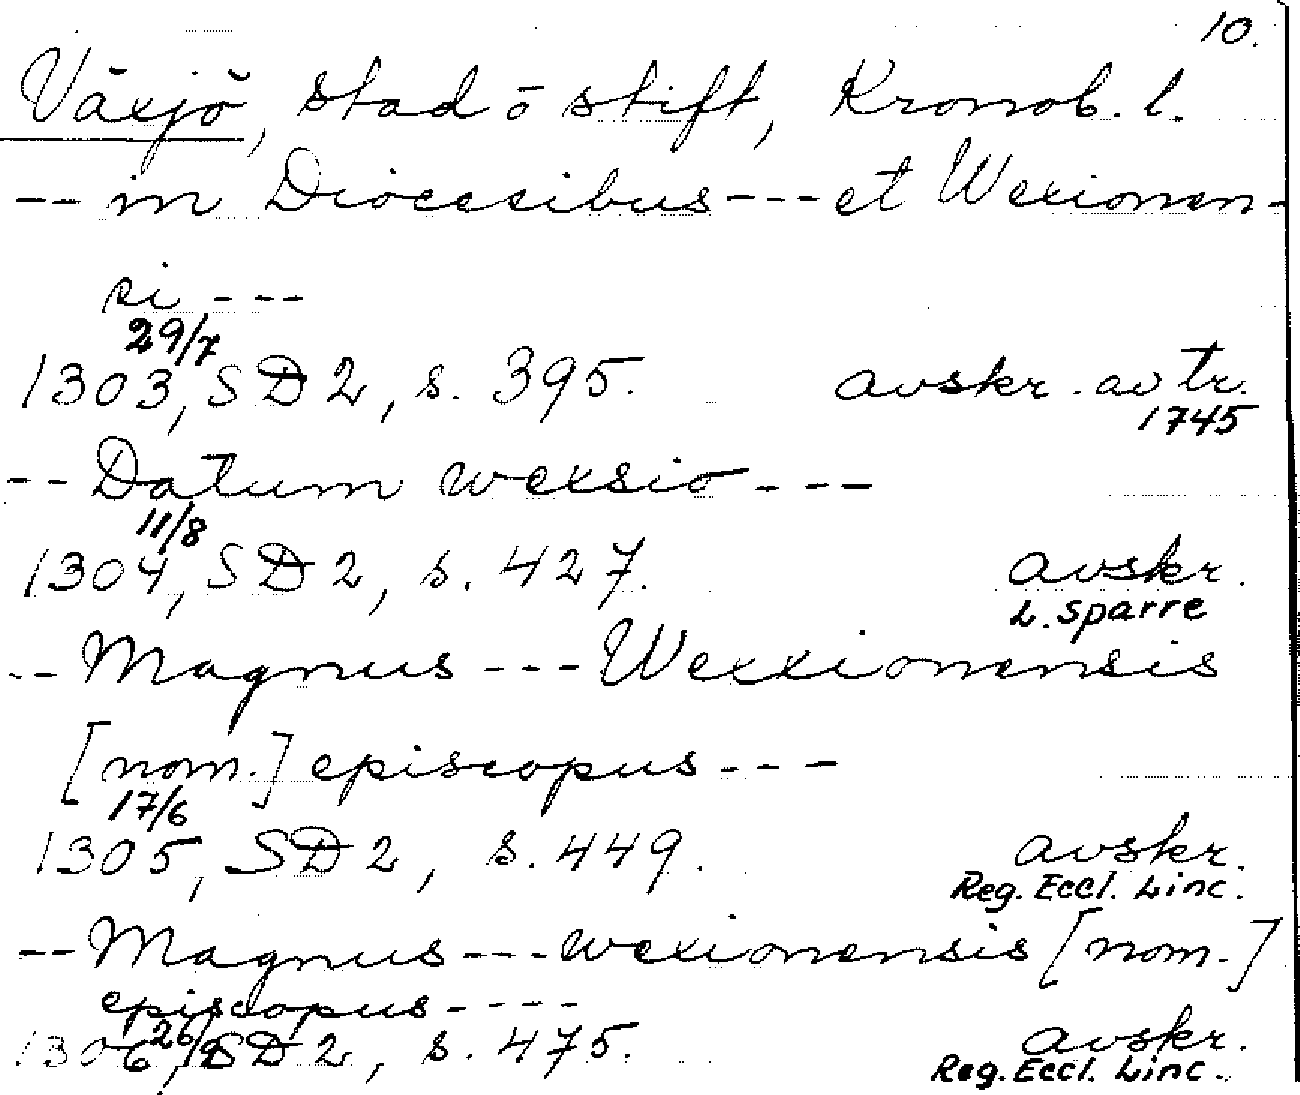 10.
Växjö, stad o stift, Kronob. l.
-- in Dioecesibus --- et Wexionen-
si ---
29/7
1303, SD 2, s. 395. avskr. av tr.
1745
-- Datum wexsio ---
11/8
1304, SD 2, s. 427. avskr.
L. Sparre
-- Magnus --- Wexxionensis
[nom.] episcopus ---
17/6
1305, SD 2, s. 449. avskr.
Reg. Eccl. Linc.
-- Magnus --- wexionensis [nom.]
episcopus ----
1306, SD 2, s. 475. avskr.
Reg. Eccl. Linc.